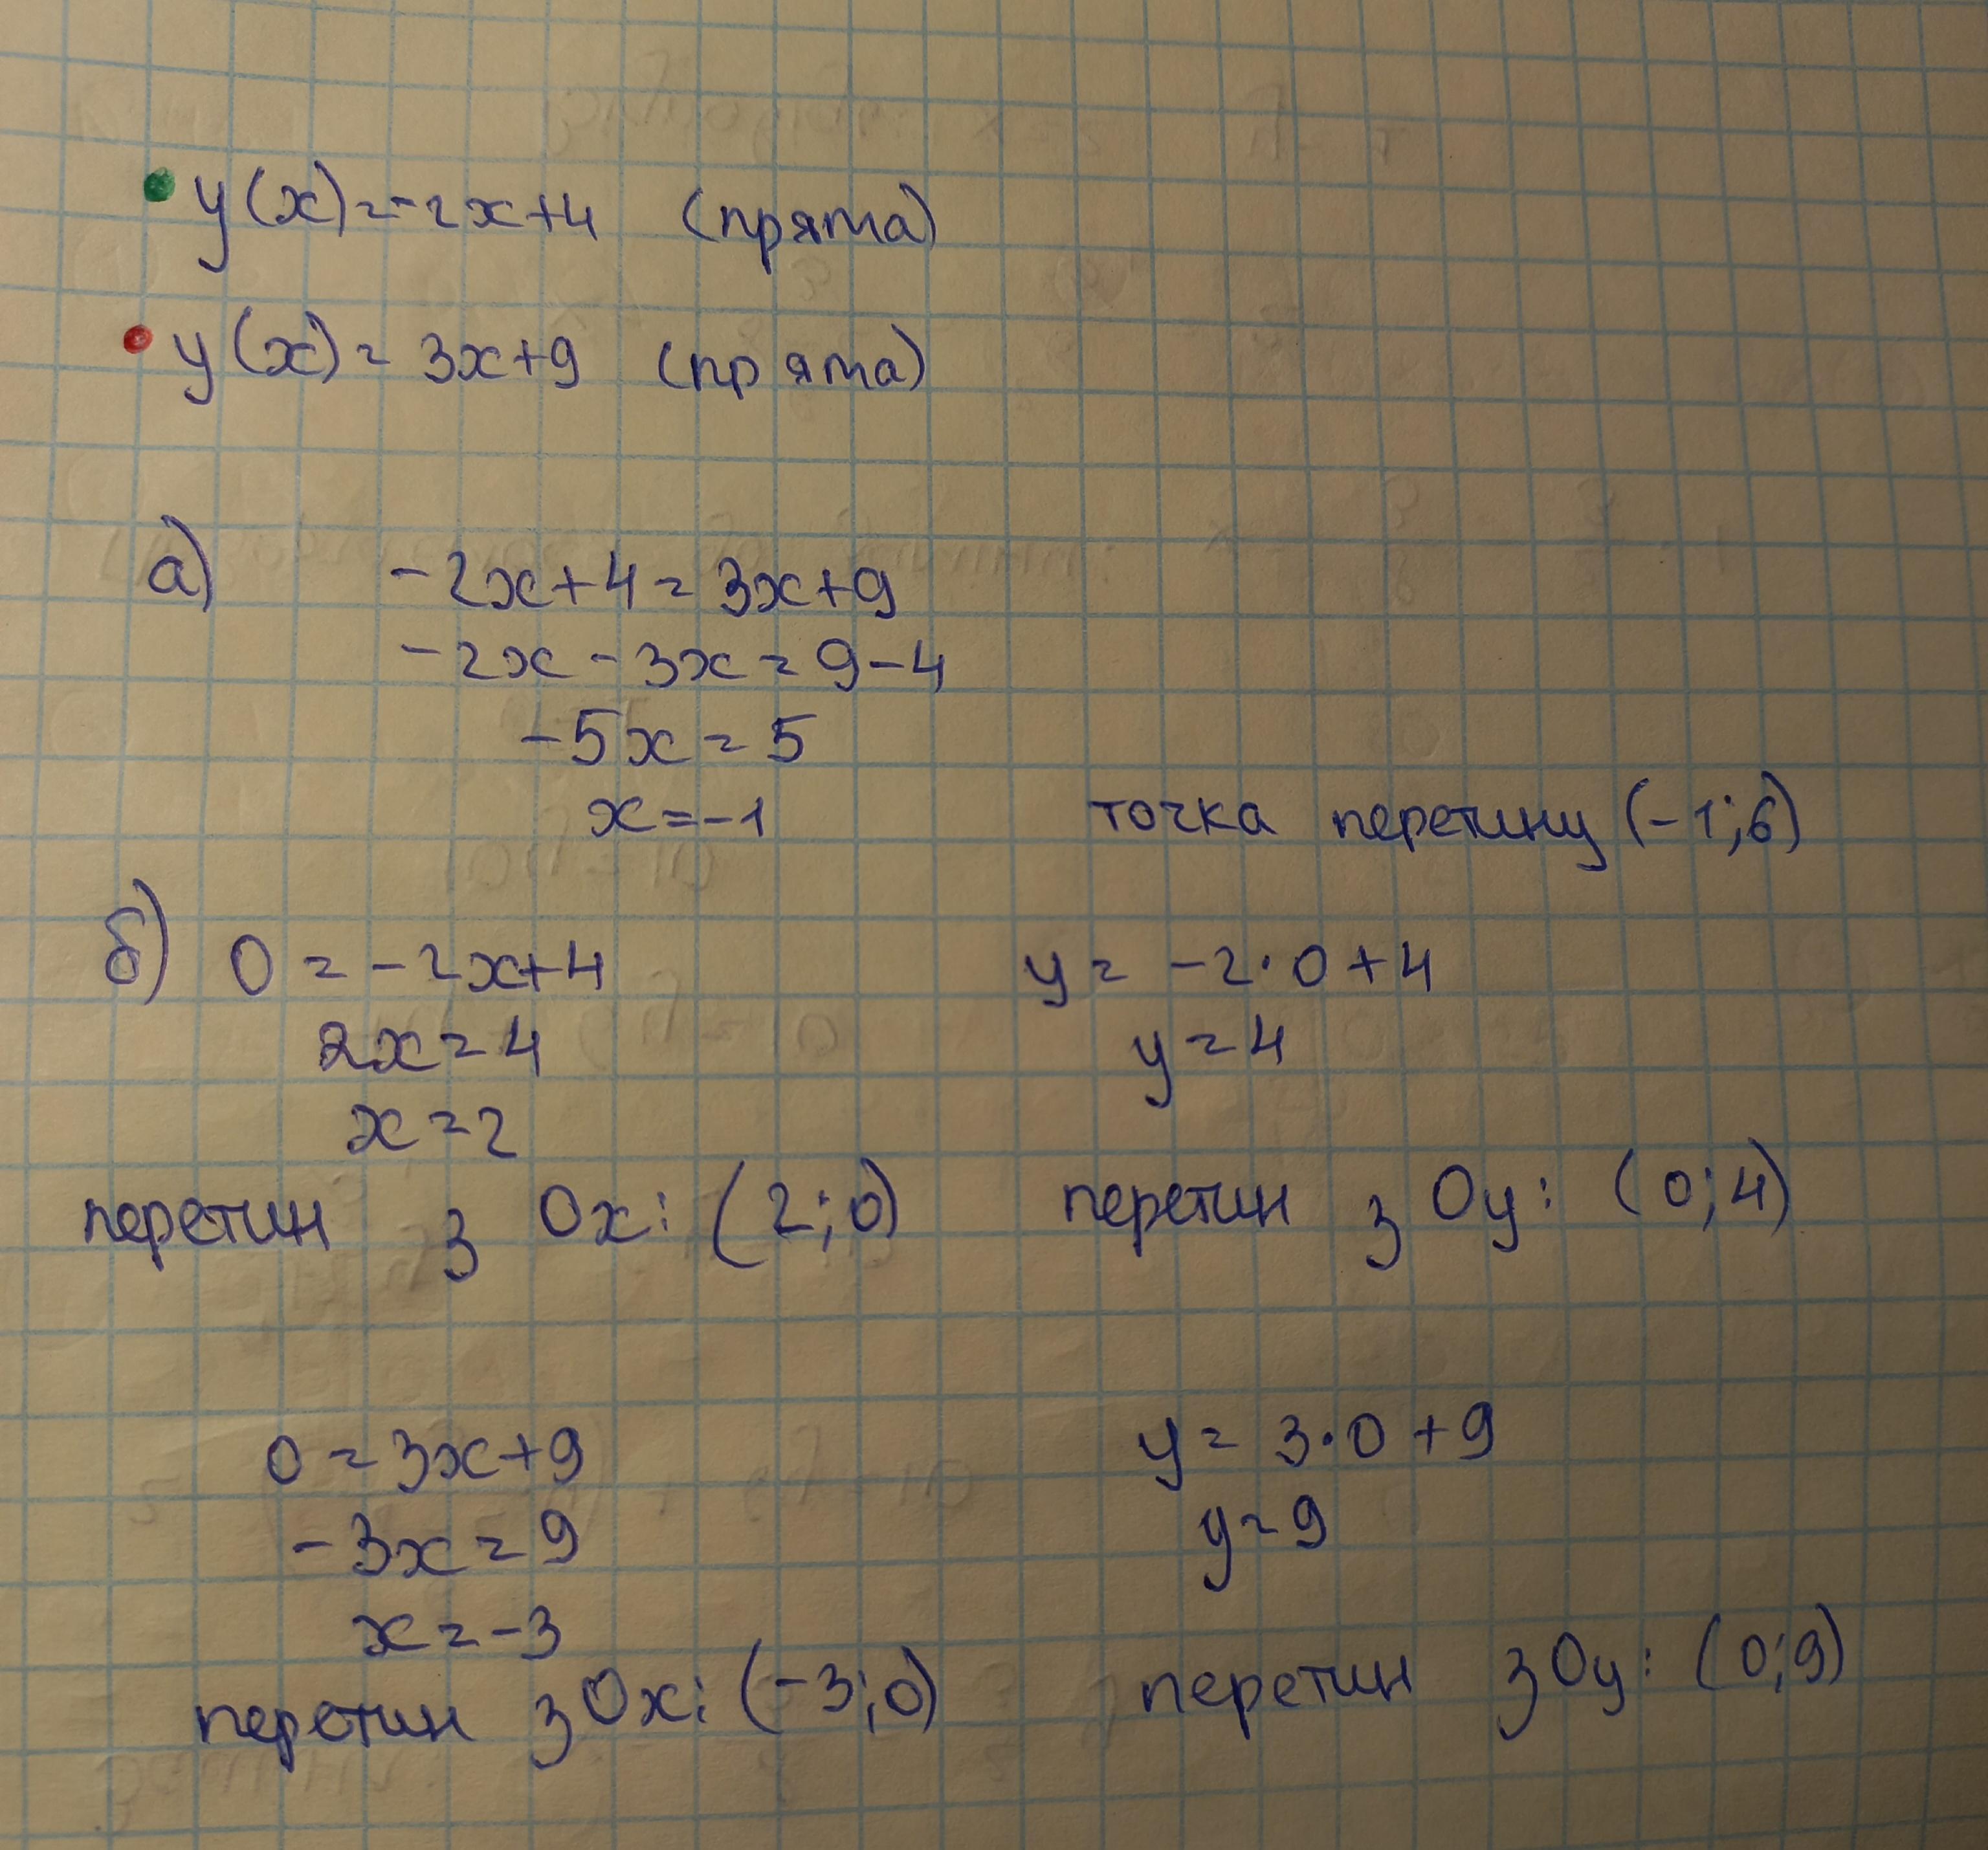 y(x)=-2x+4 (пряма)
y(x)=3x+9 (пряма)
а) -2x+4=3x+9
-2x-3x=9-4
-5x=5
x=-1 точка перетину (-1;6)
б) 0=-2x+4 y=-2·0+4
2x=4 y=4
x=2
перетин з Ox: (2;0) перетин з Oy: (0;4)
0=3x+9 y=3·0+9
-3x=9 y=9
x=-3
перетин з Ox: (-3;0) перетин з Oy: (0;9)